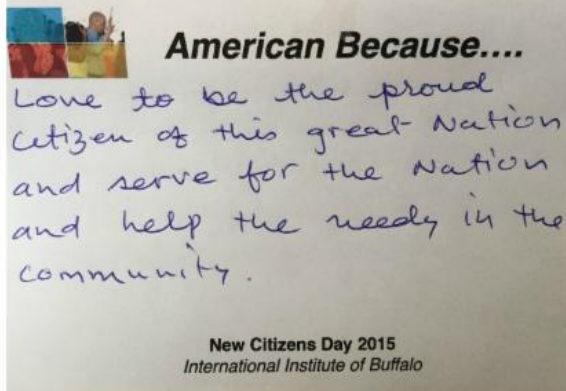 American Because....
Love to be the proud
Citizen of this great Nation
and serve for the Nation
and help the needy in the
community.
New Citizens Day 2015
International Institute of Buffalo